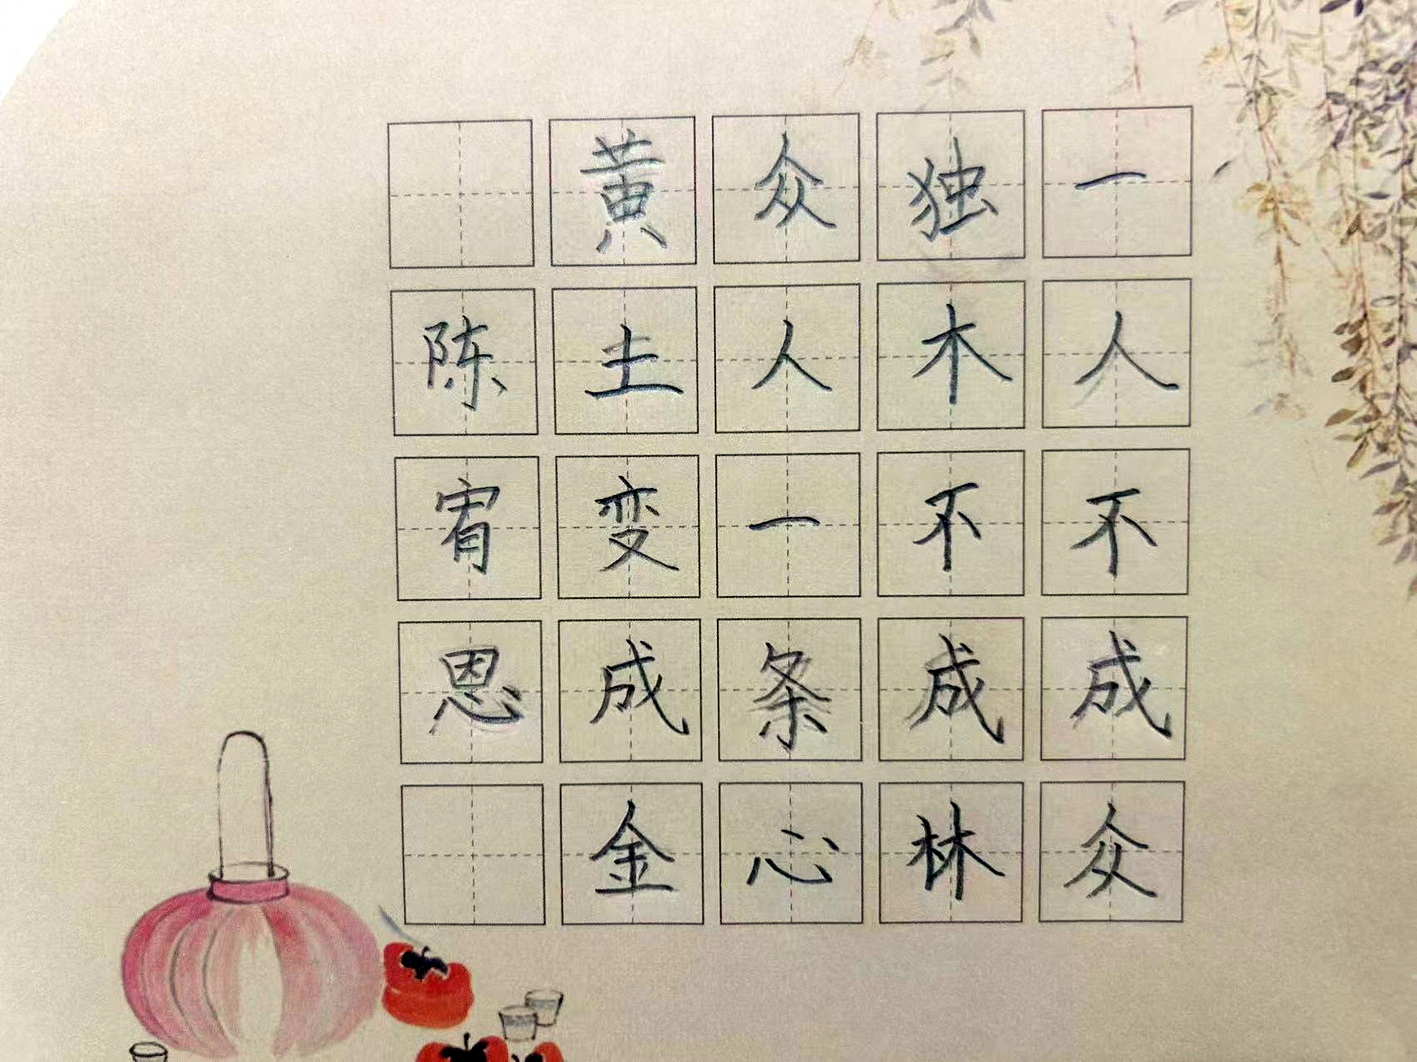 一人不成众
独木不成林
众人一条心
黄土变成金
陈宥恩